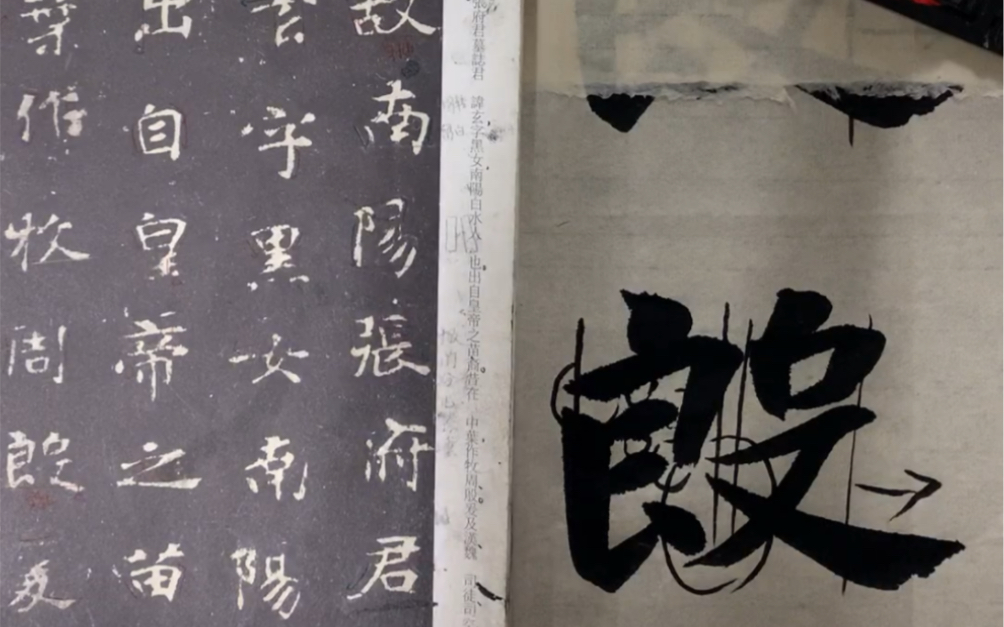 殷
府君墓誌君 諱玄字黑女南陽白水人也出自皇帝之苗裔昔在 中葉作牧周殷爰及漢魏 司徒司
故南陽張府君
玄字黑女南陽
出自皇帝之苗
葉作牧周殷爰